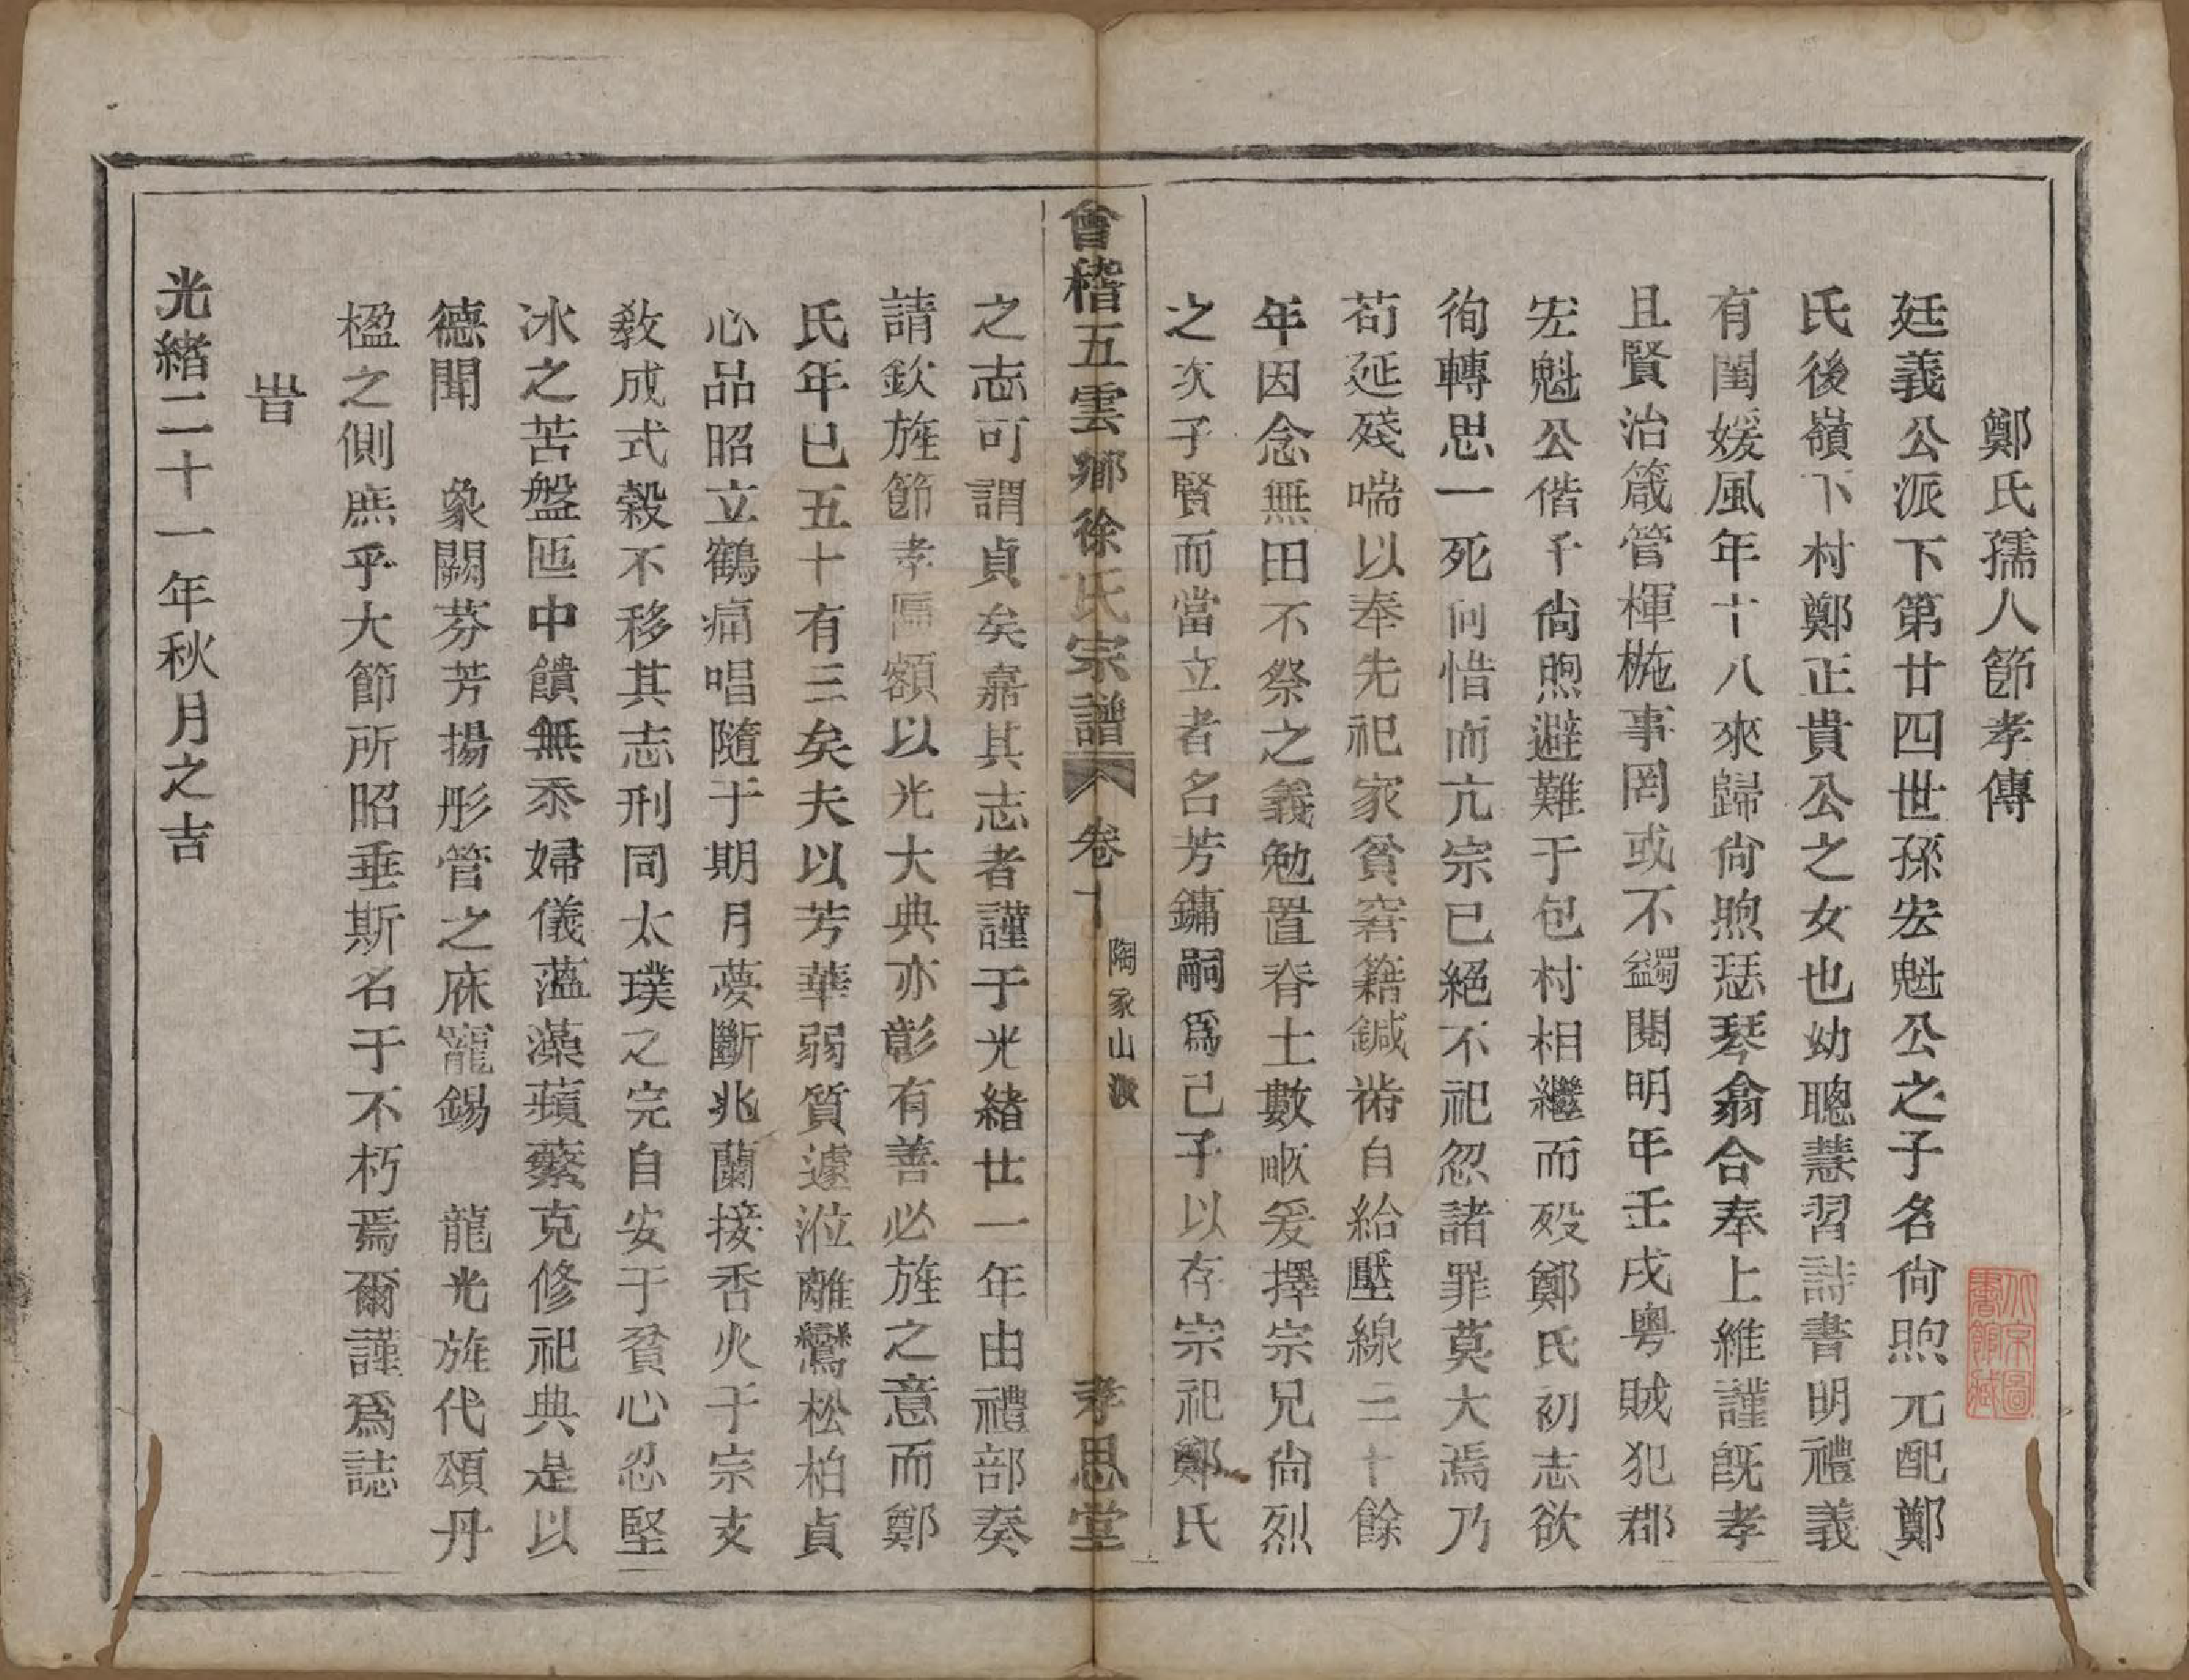 鄭氏孺人節孝傳
廷義公派下第廿四世孫宏魁公之子名尙煦元配鄭
氏後嶺下村鄭正貴公之女也幼聰慧習詩書明禮義
有閨媛風年十八來歸尙煦瑟琴翕合奉上維謹旣孝
且賢治箴管楎椸事罔或不蠲閱明年壬戌粵賊犯郡
宏魁公偕子尙煦避難于包村相繼而歿鄭氏初志欲
徇轉思一死何惜而亢宗已絕不祀忽諸罪莫大焉乃
苟延殘喘以奉先祀家貧窘籍鍼黹自給壓線二十餘
年因念無田不祭之義勉置脊土數畝爰擇宗兄尙烈
之次子賢而當立者名芳鏞嗣爲己子以存宗祀鄭氏
會稽五雲鄉徐氏宗譜 卷十 陶家山派 孝思堂
之志可謂貞矣嘉其志者謹于光緒廿一年由禮部奏
請欽旌節孝匾額以光大典亦彰有善必旌之意而鄭
氏年已五十有三矣夫以芳華弱質遽涖離鸞松柏貞
心品昭立鶴痛唱隨于期月夢斷兆蘭接香火于宗支
敎成式穀不移其志刑同太璞之完自安于貧心忍堅
冰之苦盤匜中饋無忝婦儀薀藻蘋蘩克修祀典是以
德聞 象闕芬芳揚彤管之庥寵錫 龍光旌代頌丹
楹之側庶乎大節所昭垂斯名于不朽焉爾謹爲誌
旹
光緒二十一年秋月之吉
大宗圖
書館藏